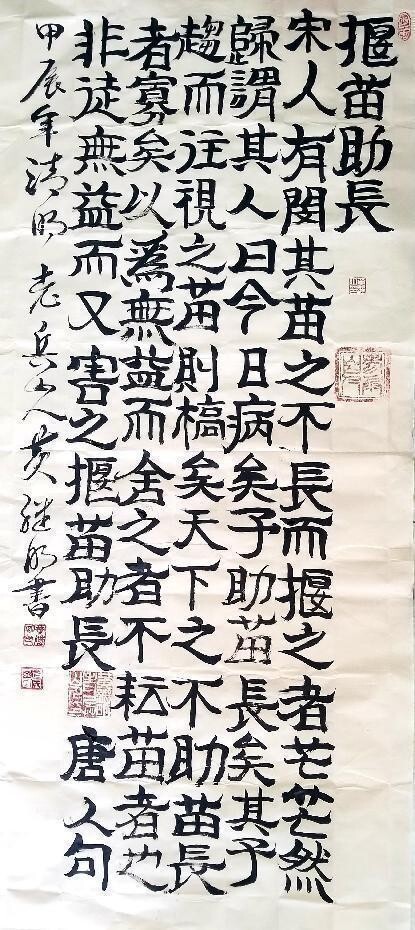 揠苗助長
宋人有閔其苗之不長而揠之者芒芒然
歸謂其人曰今日病矣予助苗長矣其子
趨而往視之苗則槁矣天下之不助苗長
者寡矣以爲無益而舍之者不耘苗者也
非徒無益而又害之揠苗助長 唐人句
甲辰年清明 老兵山人黄继明書